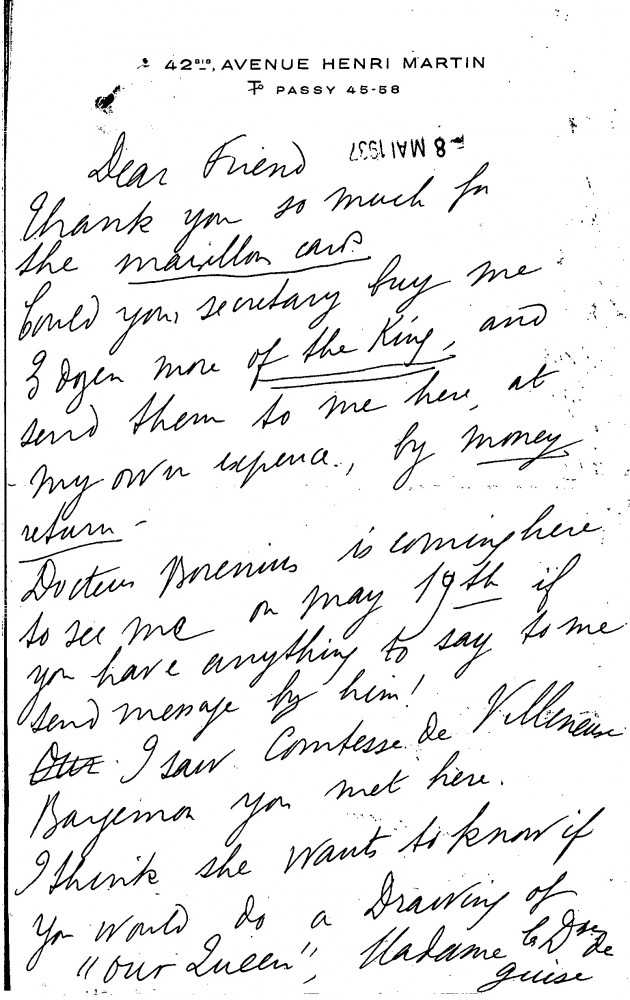 42BIS, AVENUE HENRI MARTIN
PASSY 45-58
8 MAI 1937
Dear Friend
Thank you so much for
the cards
Could your secretary buy me
3 dozen more of the King, and
send them to me here, at
my own expence, by money
return -
Docteur Borenius is coming here
to see me on May 19th if
you have anything to say to me
send message by him!
I saw Comtesse de Villeneuve
Bargemon you met here.
I think she wants to know if
you would do a Drawing of
"Our Queen", Madame la Dsse de
Guise